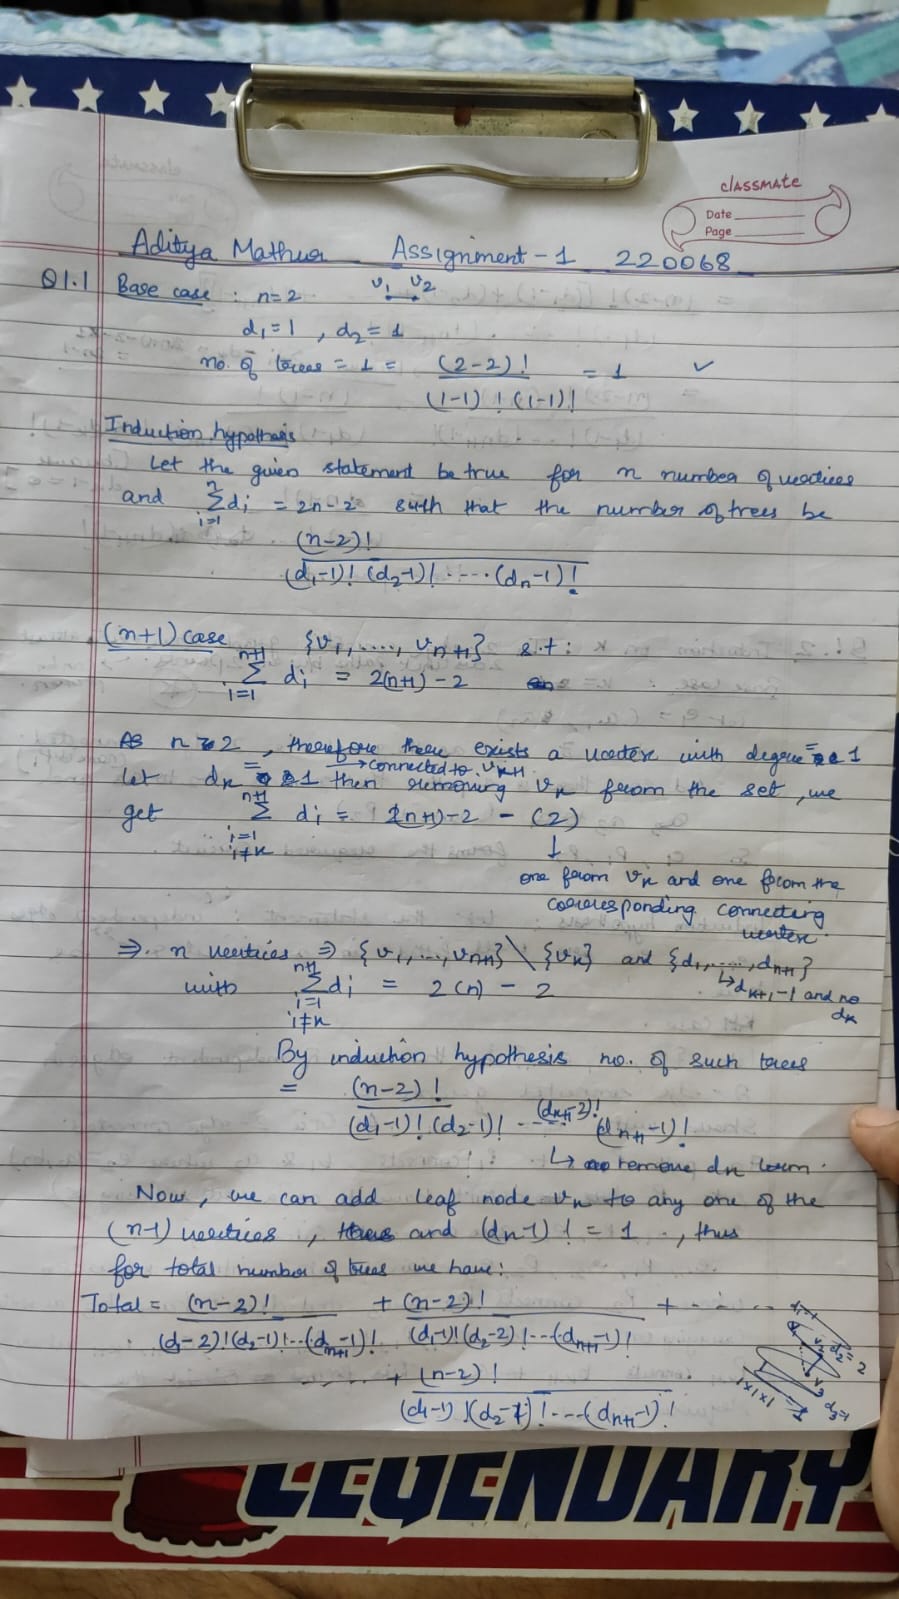 classmate
Date
Page
Aditya Mathur Assignment - 1 220068
Q1.1 Base case : n=2 v₁ v₂
d₁=1 , d₂=1
no. of trees = 1 = (2-2)! / (1-1)! (1-1)! = 1 ✓
Induction hypothesis
Let the given statement be true for n number of vertices
and Σ_{i=1}^{n} dᵢ = 2n-2 such that the number of trees be
(n-2)! / (d₁-1)! (d₂-1)! ..... (dₙ-1)!
(n+1) case {v₁,...., vₙ₊₁} s.t:
Σ_{i=1}^{n+1} dᵢ = 2(n+1)-2
As n≥2 , therefore there exists a vertex with degree = 1
→ connected to vₖ₊₁
Let dₖ = 1 then removing vₖ from the set, we
get Σ_{i=1, i≠k}^{n+1} dᵢ = 2(n+1)-2 - (2)
↓
one from vₖ and one from the
corresponding connecting
vertex.
⇒ n vertices ⇒ {v₁,...,vₙ₊₁} \ {vₖ} and {d₁,....,dₙ₊₁}
↳ dₖ₊₁-1 and no
dₖ
with Σ_{i=1, i≠k}^{n+1} dᵢ = 2(n) - 2
By induction hypothesis no. of such trees
= (n-2)! / (d₁-1)! (d₂-1)! ... (dₖ₊₁-2)! (dₙ₊₁-1)!
↳ remove dₖ term.
Now, we can add leaf node vₖ to any one of the
(n-1) vertices, and (dₖ-1)! = 1 , thus
for total number of trees we have:
Total = (n-2)! / (d₁-2)!(d₂-1)!...(dₙ₊₁-1)! + (n-2)! / (d₁-1)!(d₂-2)!...(dₙ₊₁-1)! + - . - . .
........ + (n-2)! / (d₁-1)!(d₂-1)!....(dₙ₊₁-1)!
LEGENDARY